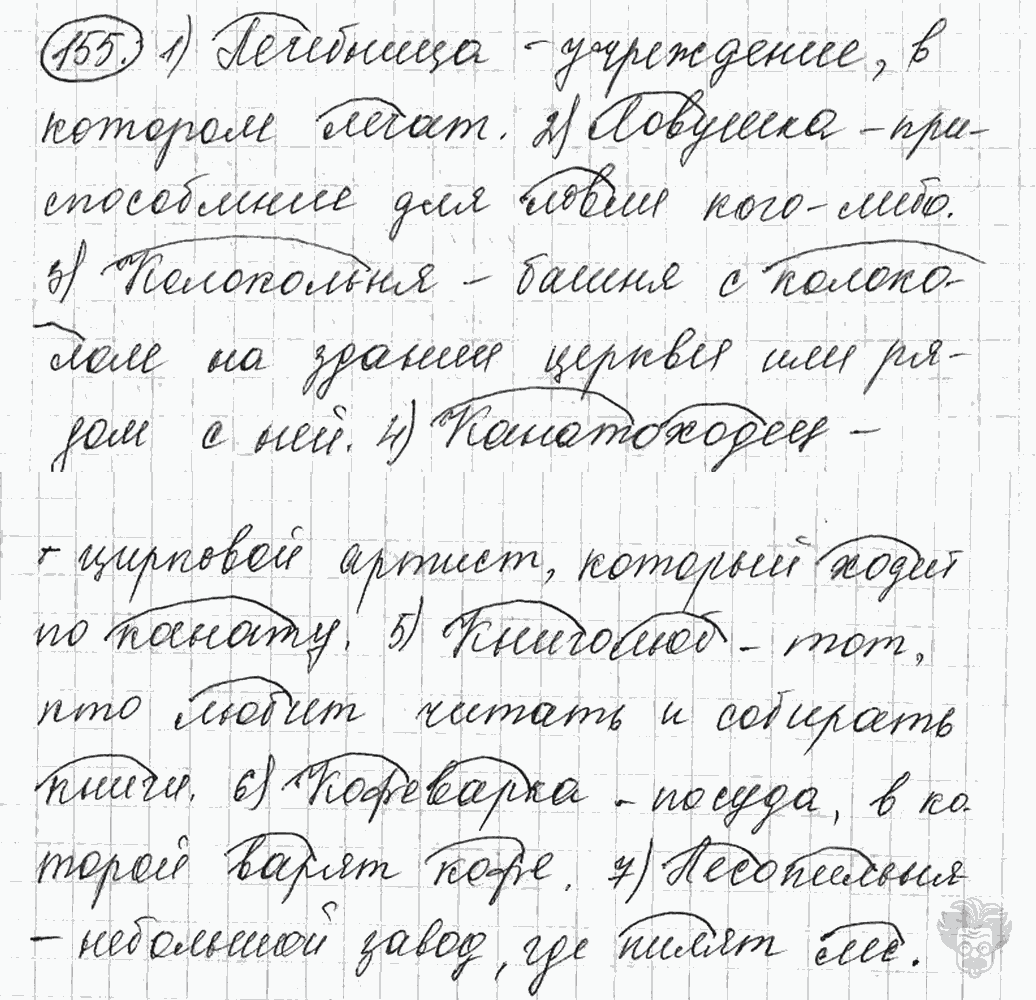 155. 1) Лечебница - учреждение, в
котором лечат. 2) Ловушка - при-
способление для ловли кого-либо.
3) Колокольня - башня с колоко-
лом на здании церкви или ря-
дом с ней. 4) Канатоходец -
- цирковой артист, который ходит
по канату. 5) Книголюб - тот,
кто любит читать и собирать
книги. 6) Кофеварка - посуда, в ко-
торой варят кофе. 7) Лесопильня
- небольшой завод, где пилят лес.